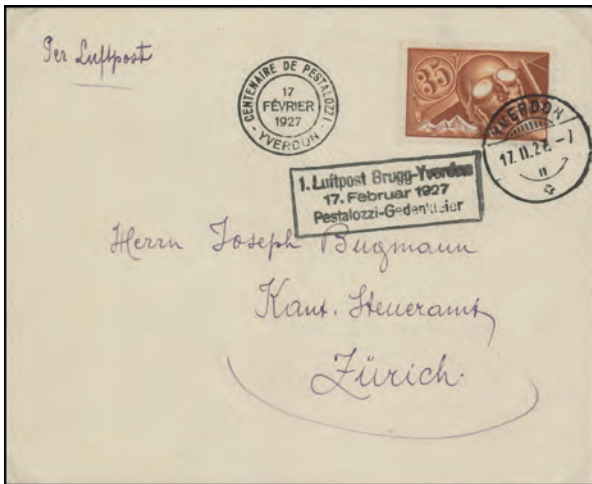 Per Luftpost
CENTENAIRE DE PESTALOZZI
17
FÉVRIER
1927
- YVERDON -
35
YVERDON
17.II.27.-7
1. Luftpost Brugg-Yverdon
17. Februar 1927
Pestalozzi-Gedenkfeier
Herrn Joseph Bugmann
Kant. Steueramt,
Zürich.